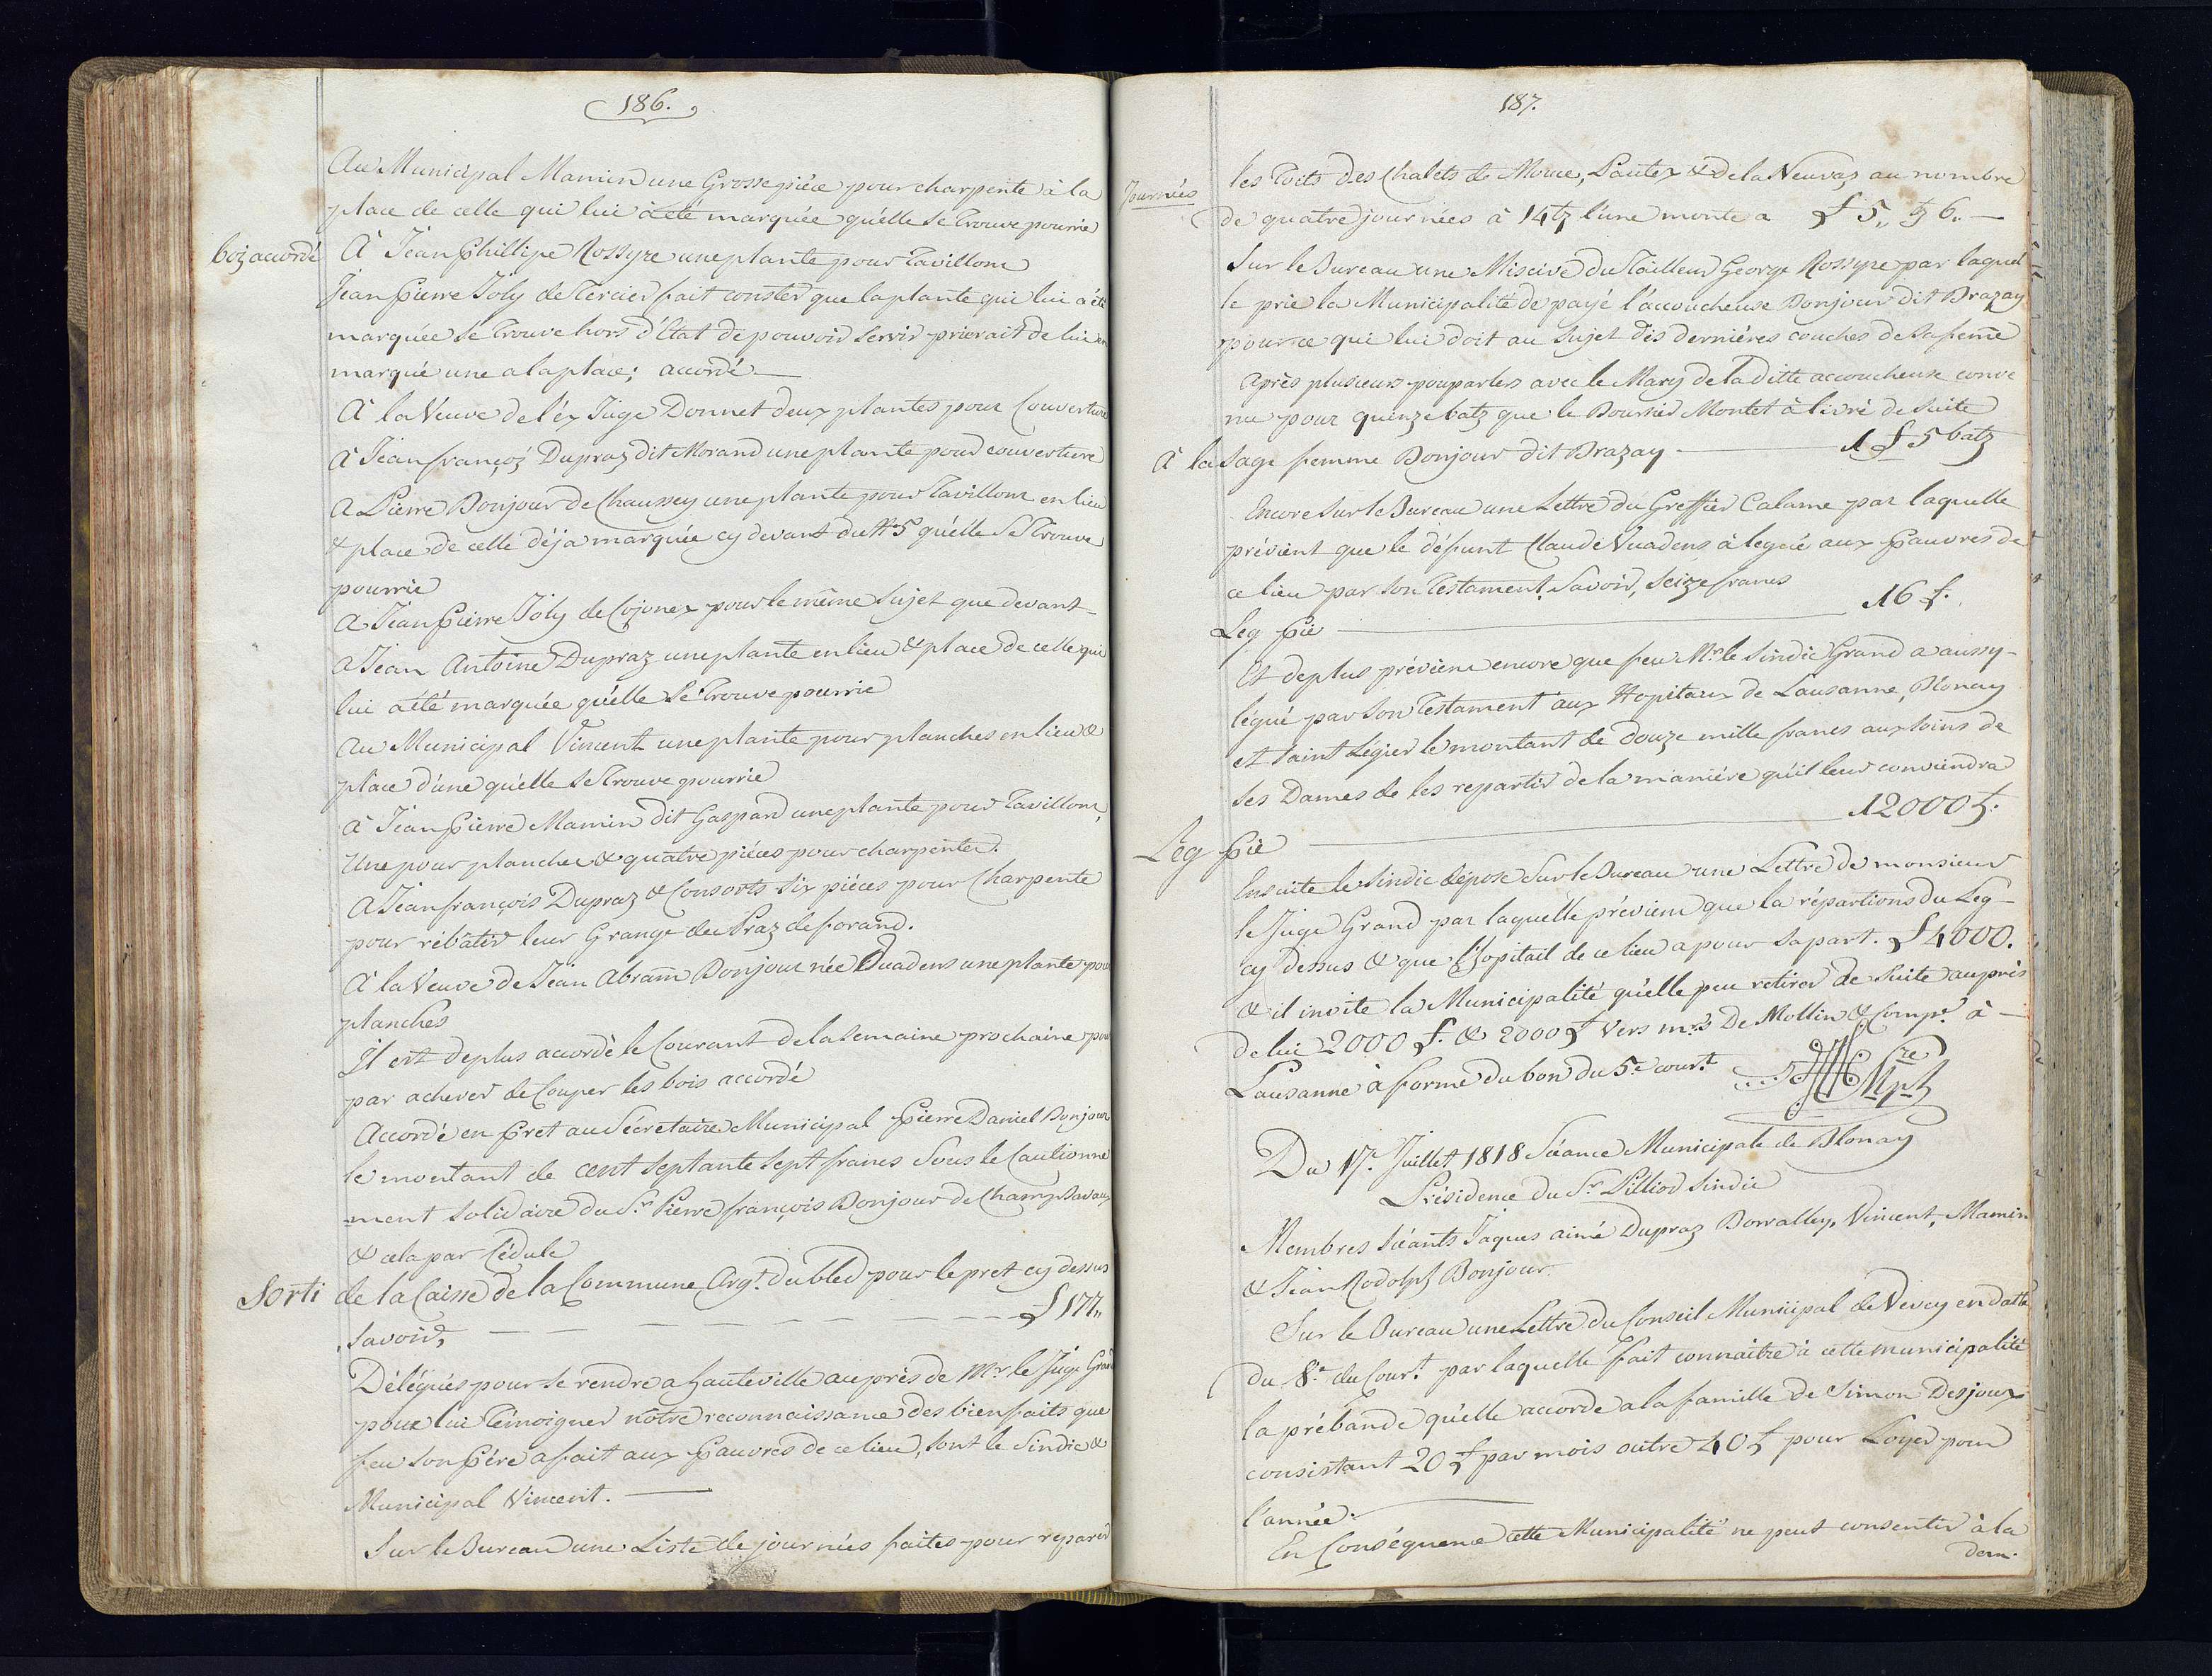 186.
Au Municipal Mamin une Grosse piéce pour charpente à la
place de celle qui lui à été marquée qu'elle se trouve pourrie
boiz accordé
A Jean Phillipe Rossyre une plante pour Tavillons
Jean Pierre Joly de Tercier fait conster que la plante qui lui a été
marquée se trouve hors d'Etat de pouvoir servir prierait de lui en
marqué une a la place; accordé —
A la Veuve de l'éx Juge Donnet deux plantes pour Couverture
A Jean françoiz Dupraz dit Morand une plante pour couverture
A Pierre Bonjour de Chaussey une plante pour Tavillons en lieu
& place de celle déja marquée cy devant du No 5 qu'elle se trouve
pourrie
A Jean Pierre Joly de Cojonex pour le même sujet que devant
A Jean Antoine Dupraz une plante en lieu & place de celle qui
lui a été marquée qu'elle se trouve pourrie
Au Municipal Vincent une plante pour planches en lieu &
place d'une qu'elle se trouve pourrie
A Jean Pierre Mamin dit Gaspard une plante pour Tavillons,
Une pour planches & quatre piéces pour charpentes.
A Jean françois Dupraz & Consorts six piéces pour Charpente
pour rébâtir leur Grange de Praz de forand.
A la Veuve de Jean Abram Bonjour née Vuadens une plante pour
planches
Il est de plus accordé le Courant de la semaine prochaine pour
par achever de Couper les bois accordé
Accordé en Pret au Sécretaire Municipal Pierre Daniel Bonjour
le montant de cent septante sept francs Sous le Cautionne
=ment solidaire du Sr. Pierre françois Bonjour de Champsavaux
& cela par Cédule
Sorti
de la Caisse de la Commune Argt. du bled pour le pret cy dessus
savoir, — — — — — — — — f 177,,
Délégués pour se rendre a hauteville auprès de Mr. le Juge Grand
pour lui témoigner nôtre reconnaissance des bienfaits que
feu son Pére a fait aux Pauvres de ce lieu, sont le Sindic &
Municipal Vincent. —
Sur le Bureau une Liste de journées faites pour reparer
187.
Journées
les toits des Chalets de Moue, Pautex & de la Neuvaz au nombre
de quatre journées à 14 bz l'une monte a f 5,, bz 6. —
Sur le Bureau une Miscive du Tailleur George Rossyre par laquel
le prie la Municipalité de payé l'accoucheuse Bonjour dit Brazay
pour ce qui lui doit au sujet dès dernières couches de sa feme
Après plusieurs pouparlers avec le Mary de laditte accoucheuse conve
nu pour quinze batz que le Boursier Montet à livré de suite
A la Sage femme Bonjour dit Brazay — 1 f 5 batz
Encore sur le Bureau une Lettre du Greffier Calame par laquelle
prévient que le défunt Claude Vuadens à legué aux Pauvres de
ce lieu par son Testament Savoir, seize francs
Leg Pié — 16 f.
Et de plus prévient encore que feu Mr. le Sindic Grand a aussy
légué par son Testament aux Hopitaux de Lausanne, Blonay
et Saint Légier le montant de douze mille francs aux soins de
ses Dames de les repartir de la maniére qu'il leur conviendra
Lég Pié — 12000 f.
Ensuite le Sindic dépose sur le Bureau une Lettre de monsieur
le Juge Grand par laquelle prévient que la répartions du Leg
cy dessus & que l'hopitail de ce lieu a pour sa part. f 4000.
& il invite la Municipalité qu'elle peu retirer de suite auprès
de lui 2000 f. & 2000 f vers mrs De Mollin & Compe. à
Lausanne à forme du bon du 5e. court.
Du 17e. Juillet 1818 Séance Municipale de Blonay
Présidence du Sr. Pilliod Sindic
Membres séants Jaques aimé Dupraz Borralley, Vincent, Mamin
& Jean Rodolph Bonjour.
Sur le Bureau une Lettre du Conseil Municipal de Vevey en datte
du 8e. du Court. par laquelle fait connaitre à cette municipalité
la prébande qu'elle accorde a la famille de Simon Desjoux
consistant 20 f par mois outre 40 f pour Loyer pour
l'année.
En Conséquence cette Municipalité ne peut consentir à la
dem.